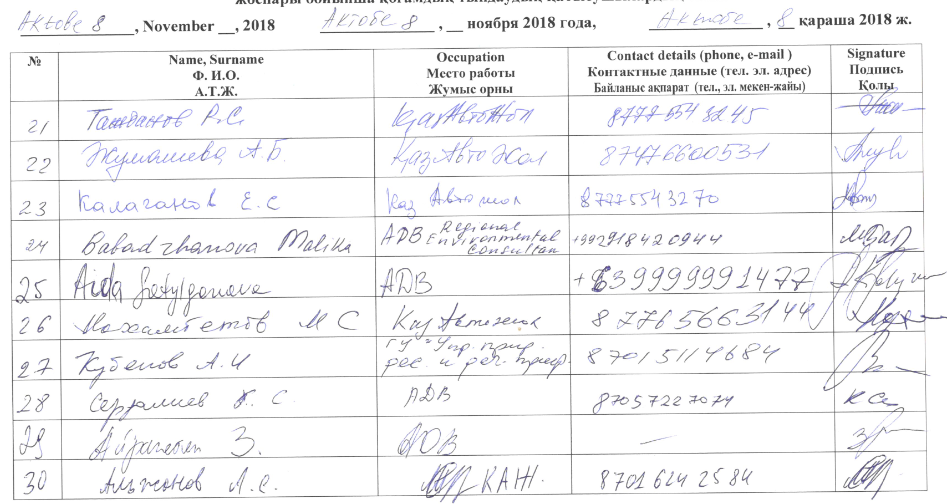 Актобе 8, November __, 2018 Актобе 8, __ ноября 2018 года, Актобе, 8 қараша 2018 ж.
№ Name, Surname Ф. И.О. А.Т.Ж. Occupation Место работы Жумыс орны Contact details (phone, e-mail ) Контактные данные (тел. эл. адрес) Байланыс ақпарат (тел., эл. мекен-жайы) Signature Подпись Қолы
21 Р.С. КазАвтоЖол 8777554 8245
22 Жумашева А Б. ҚазАвтоЖол 87476600531
23 Калаганов Е.С Каз Автожол 87975543270
24 Babadzhanova Malika ADB Regional Environmental Consultan +992918420944
25 Aida Satylganova ADB +639999991477
26 М С КазАвтожол 8 7765663144
27 Кубенов А.И ГУ Упр. прир. рес. и рег. прир. 8 7015114684
28 С. ADB 87057227074
29 З. —
30 Альжанов Л.С. КАЖ 8701 624 25 84